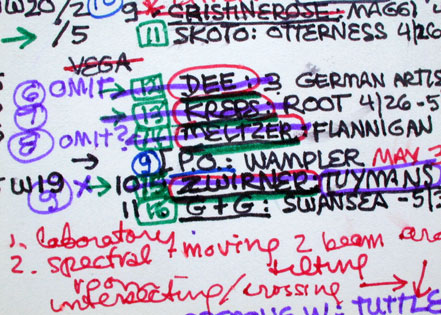 W20/2 10 9 GRISHNEROSE: MAGGI
→ /5 11 SKOTO: OTTERNESS 4/26
VEGA
6 OMIT → 12 DEE: 3 GERMAN ARTIS
7 → 13 KREPS: ROOT 4/26-5
8 OMIT? → 14 MELTZER: FLANNIGAN
→ 9 P.O.: WAMPLER MAY 3
TW19 9 X → 10 15 ZWIRNER TUYMANS
11 16 G+G: SWANSEA -5/3
1. laboratory + moving 2 beam are
2. spectral tilting
rpom
intersecting/crossing →
W: TUTTLE